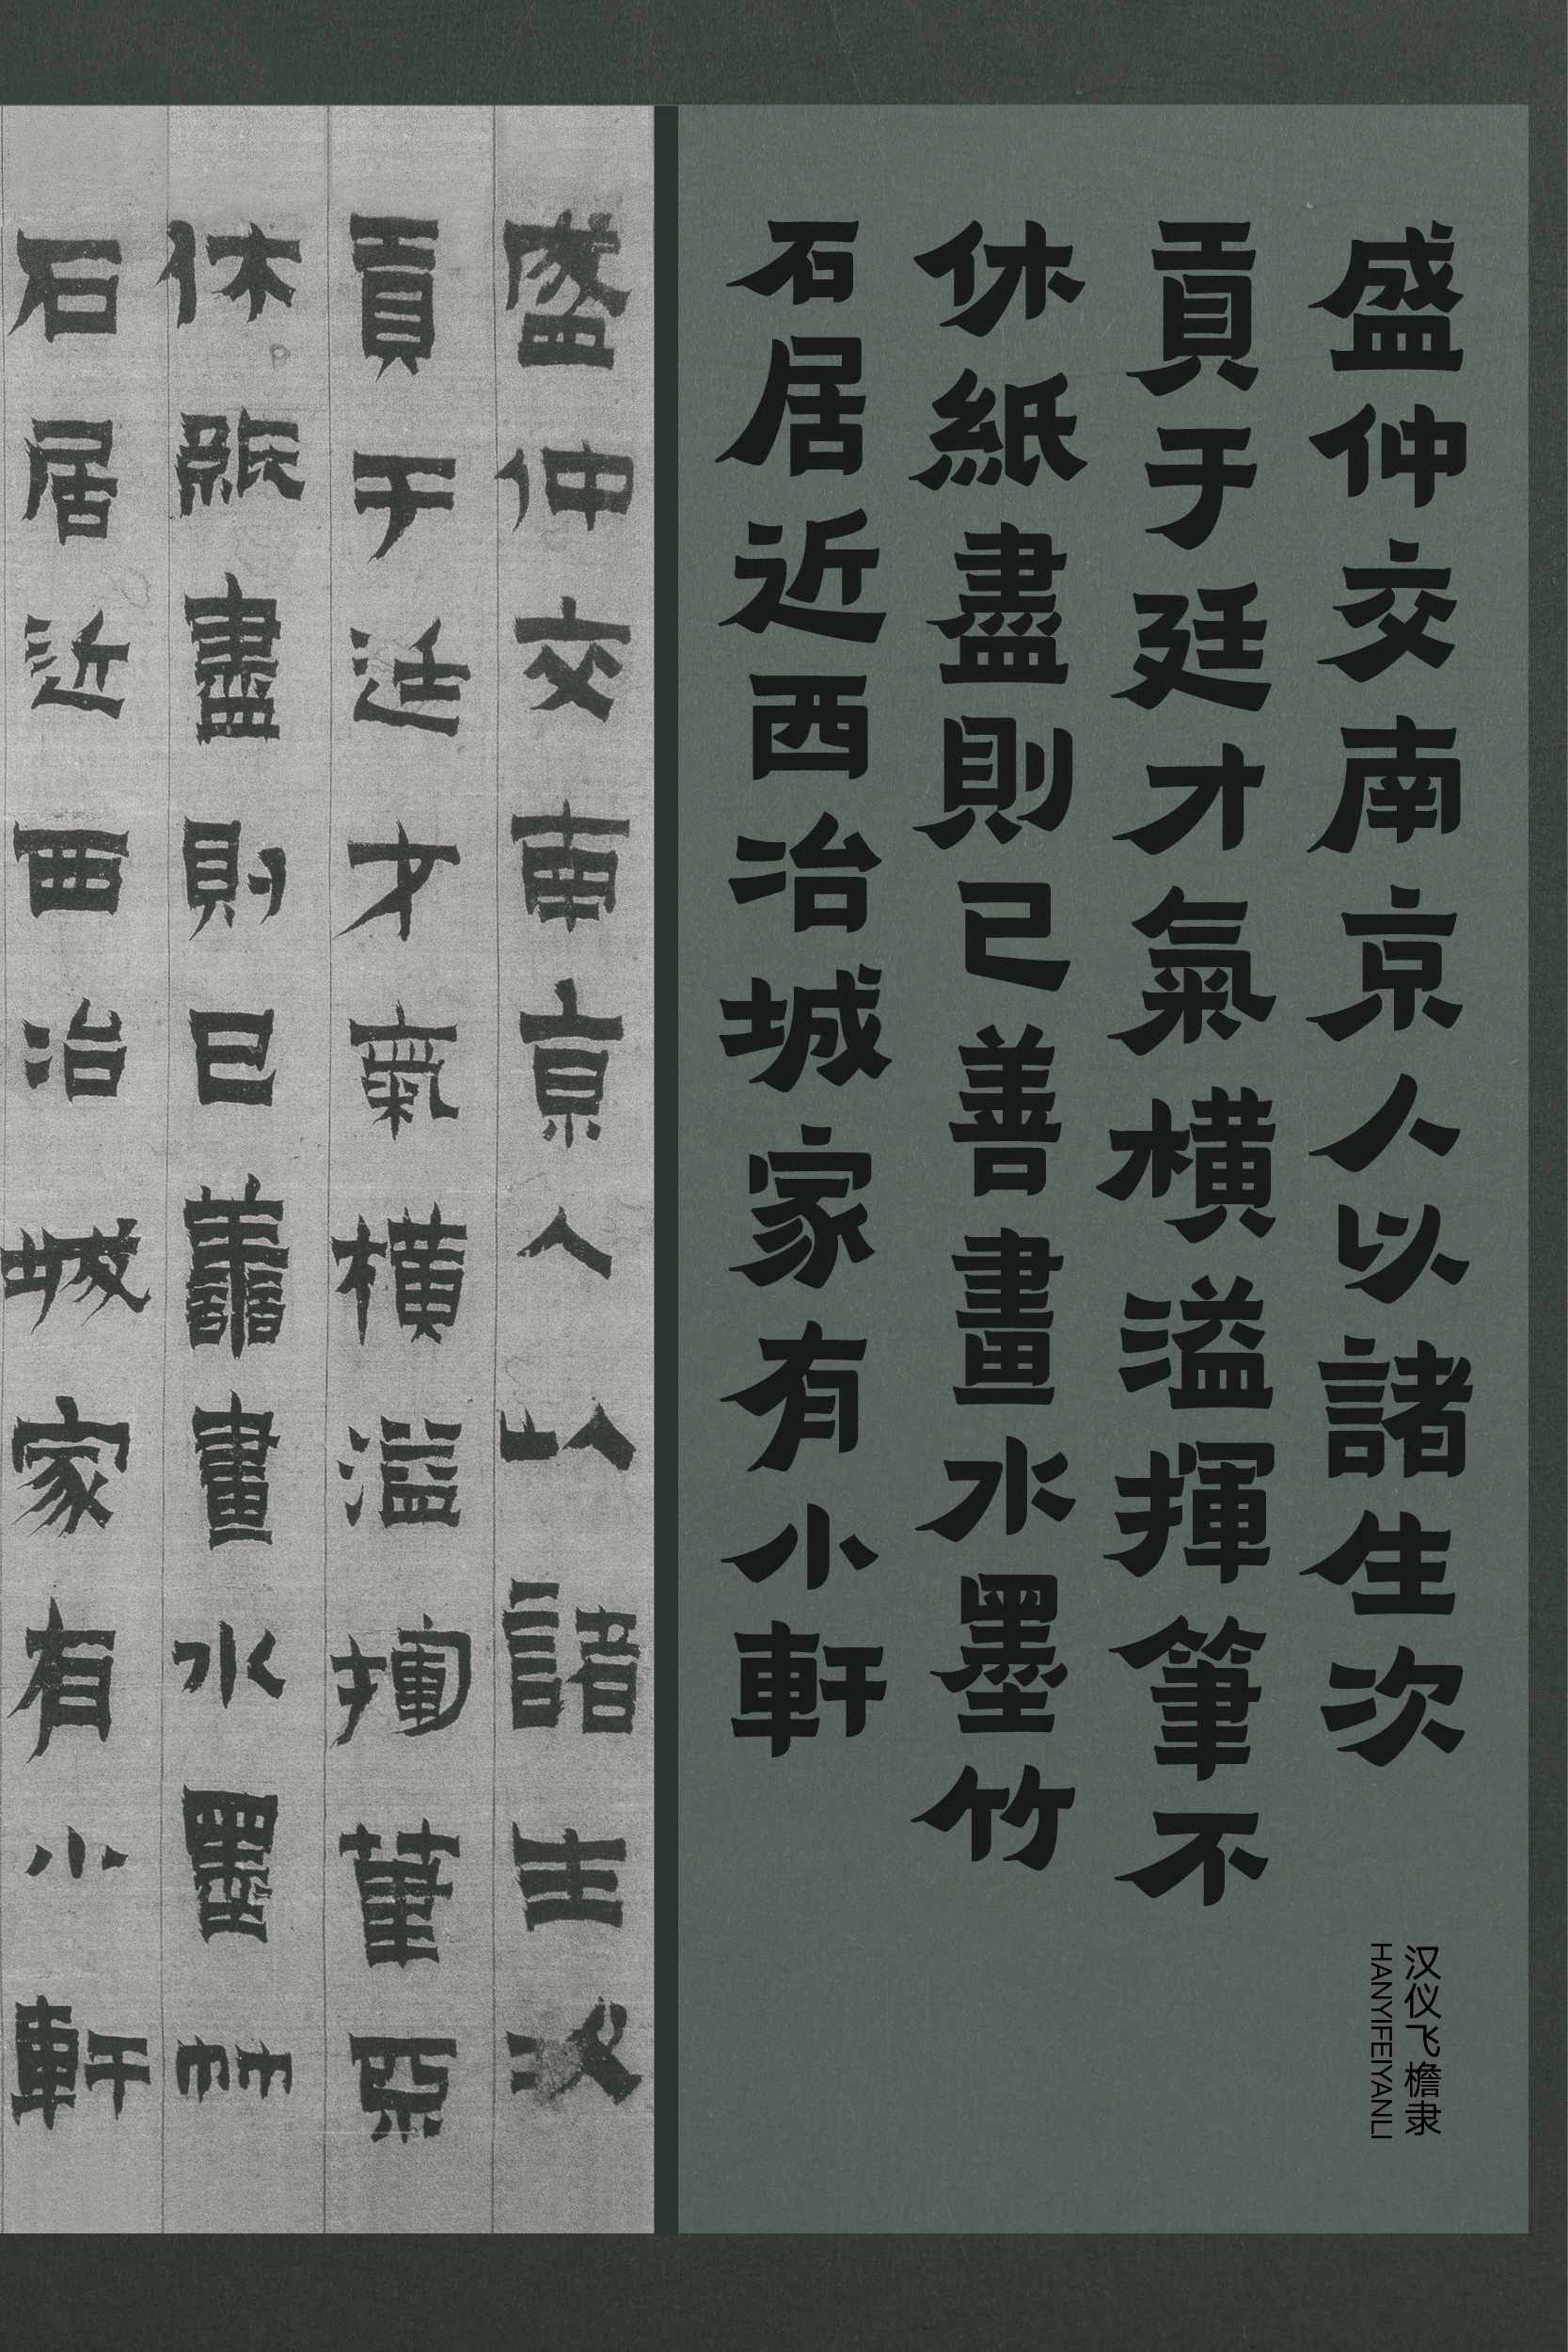 盛仲交南京人以諸生次
貢于廷才氣橫溢揮筆不
休紙盡則已善畫水墨竹
石居近西冶城家有小軒
汉仪飞檐隶
HANYIFEIYANLI
盛仲交南京人以諸生次
貢于廷才氣橫溢揮筆不
休紙盡則已善畫水墨竹
石居近西冶城家有小軒